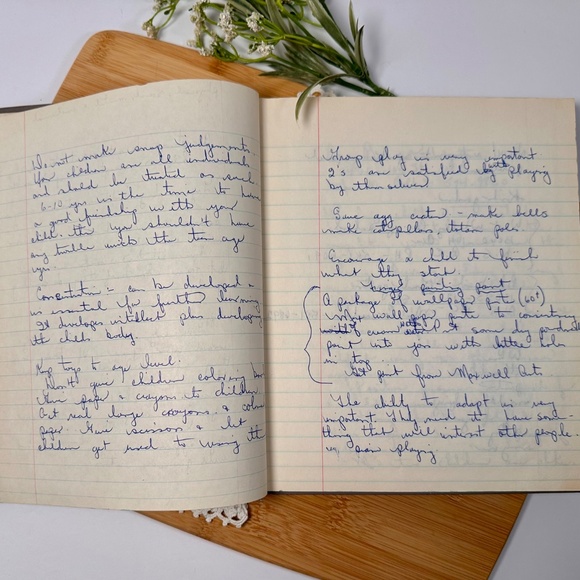 Do not make snap judgements
for children are all individuals
and should be treated as such.
6-10 yrs is the time to have
a good friendship with your
child. Then you shouldn't have
any trouble with the teen age
yrs.
Concentration - can be developed &
is essential for further learning
It develops intellect plus developing
the child's body.
Keep toys to age level.
Don't give children coloring books
Give paper & crayons to children
Get real large crayons & colored
paper. Give scissors & let
children get used to using the
Group play is very important
2's are satisfied by with playing
by themselves
Save egg crates - make bells
make caterpillars, totem poles.
Encourage a child to finish
what they start
finger painting paint
A package of wallpaper paste (60¢)
Mix wall paper paste to consistency
of cream & some dry powder
paint into jars with little holes
in top.
Get paint from Maxwell
The child to adapt is very
important. They need to have some-
thing that will interest other people -
playing